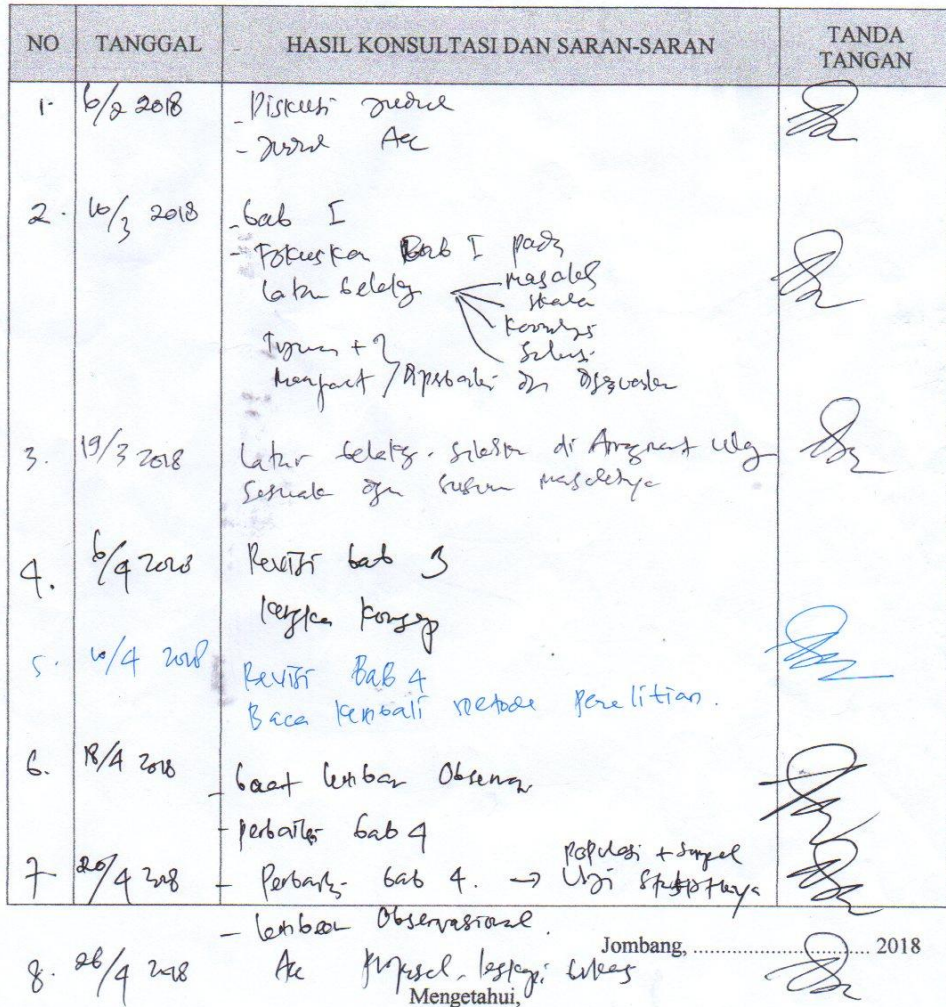 NO TANGGAL HASIL KONSULTASI DAN SARAN-SARAN TANDA TANGAN
1. 6/2 2018 - Diskusi judul
- judul Acc
2. 10/3 2018 - bab I
- Fokuskan Bab I pada
Latar belakg masalah
skala
kronologi
Solusi
Tujuan +
Manfaat / diperbaiki dan
3. 19/3 2018 Latar belakg. silakan di Arrangment ulg
Sesuaik dgn susun masalahnya
4. 6/4 2018 Revisi bab 3
kergka konsep
5. 10/4 2018 Revisi Bab 4
Baca kembali metode penelitian.
6. 18/4 2018 - buat lembar Observasi
- perbaiki bab 4
7 20/4 2018 - Perbaiki bab 4. → populasi + sampel
Uji Statistiknya
- lembar Observasional.
Jombang, ........................ 2018
8. 26/4 2018 Acc Proposal. lengkapi berkas
Mengetahui,